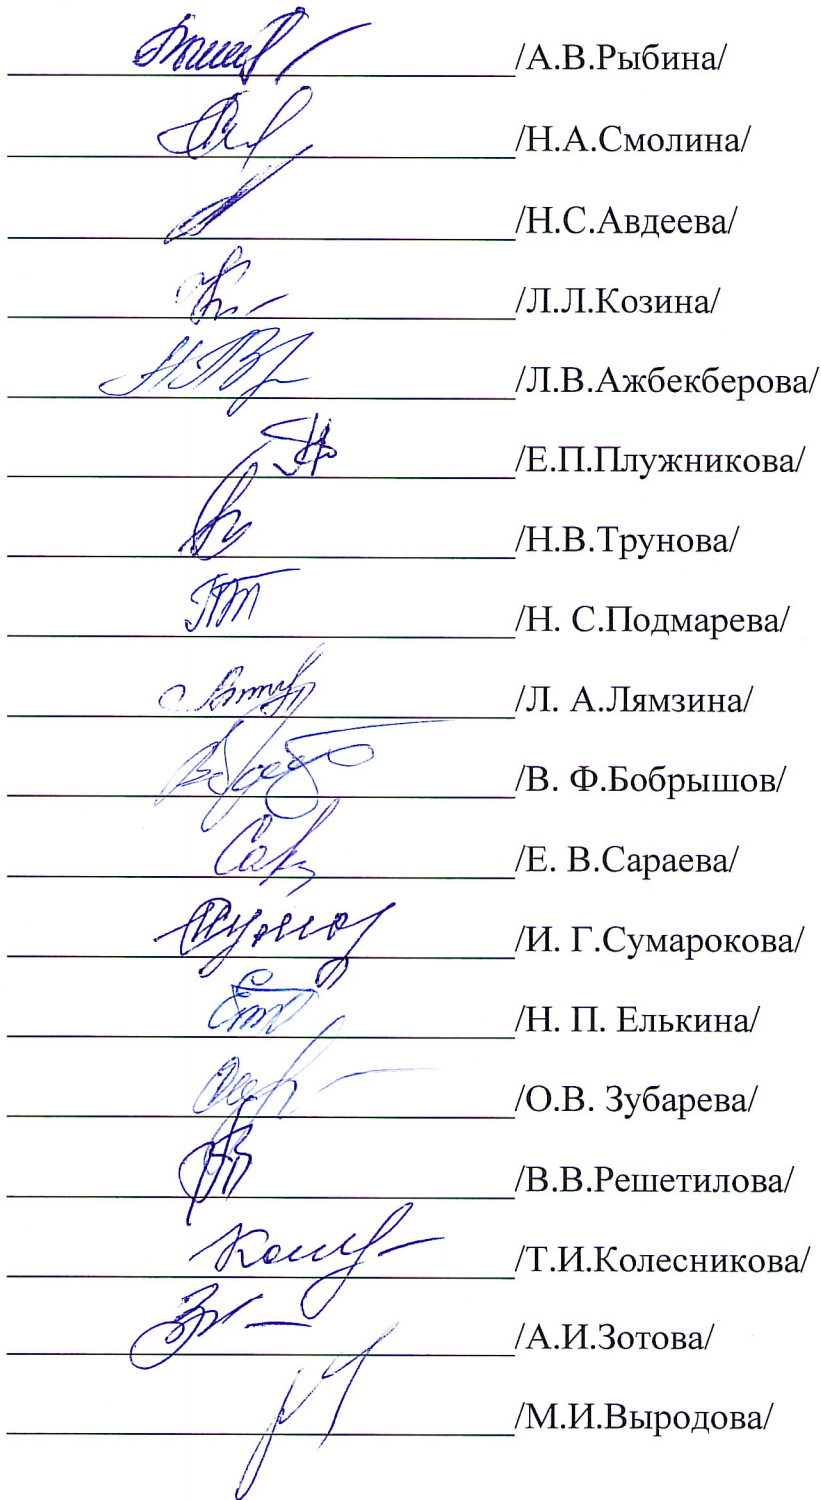 /А.В.Рыбина/
/Н.А.Смолина/
/Н.С.Авдеева/
/Л.Л.Козина/
/Л.В.Ажбекберова/
/Е.П.Плужникова/
/Н.В.Трунова/
/Н. С.Подмарева/
/Л. А.Лямзина/
/В. Ф.Бобрышов/
/Е. В.Сараева/
/И. Г.Сумарокова/
/Н. П. Елькина/
/О.В. Зубарева/
/В.В.Решетилова/
/Т.И.Колесникова/
/А.И.Зотова/
/М.И.Выродова/